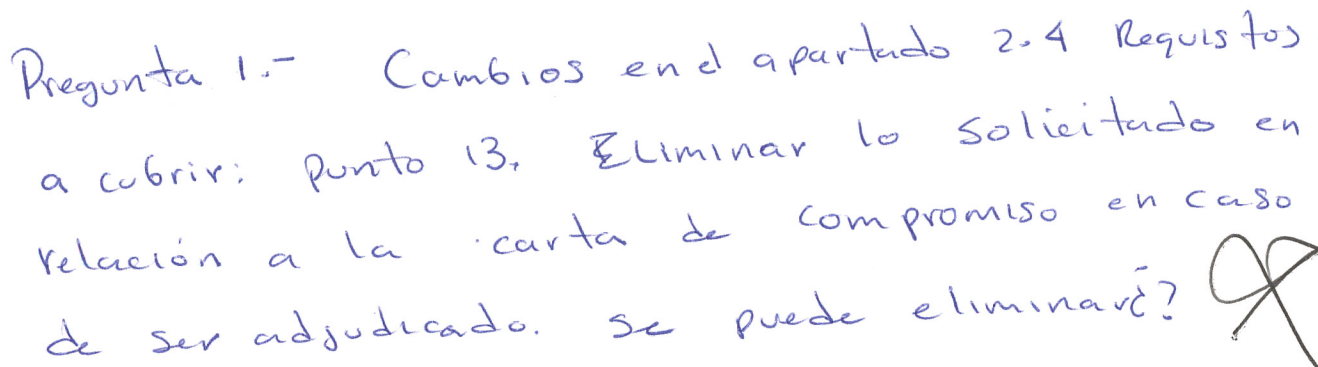 Pregunta 1.- Cambios en el apartado 2.4 Requistos
a cubrir: punto 13, Eliminar lo solicitado en
relación a la carta de compromiso en caso
de ser adjudicado. Se puede eliminar¿?